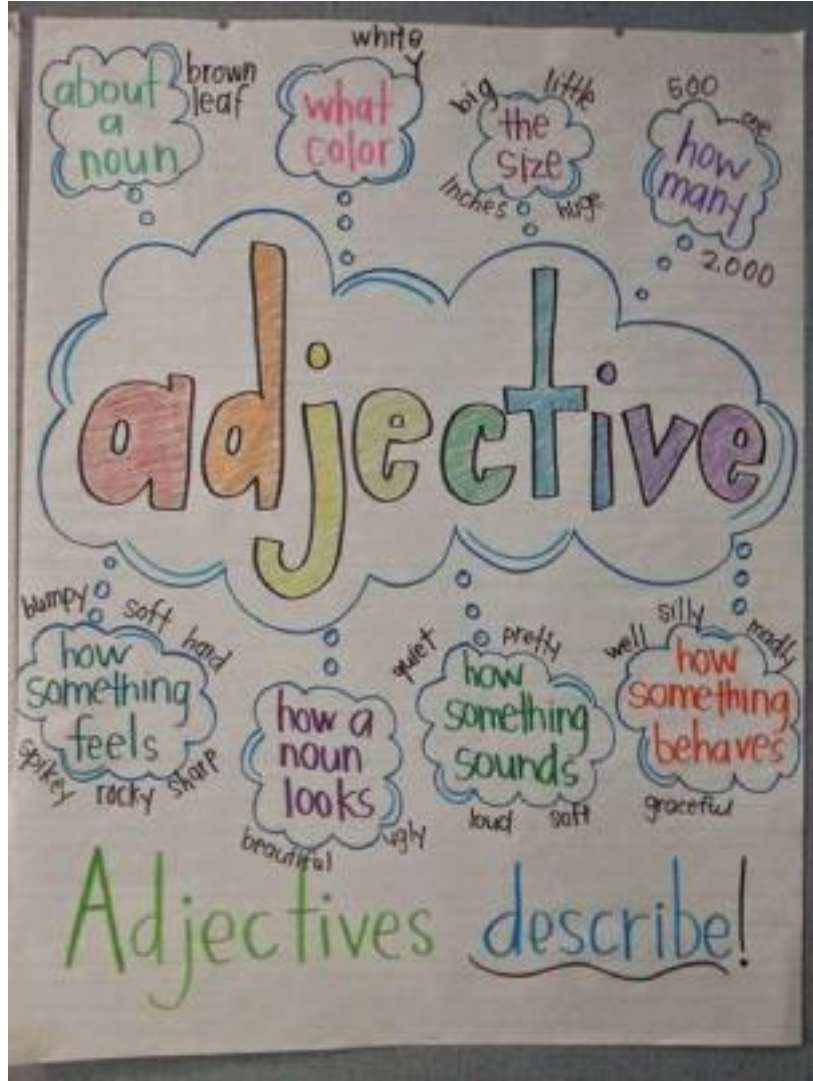 about
a
noun
brown
leaf
white
what
color
big
little
the
size
inches
huge
500
one
how
many
2,000
adjective
bumpy
soft
hard
how
something
feels
spikey
rocky
sharp
how a
noun
looks
beautiful
ugly
quiet
pretty
how
something
sounds
loud
soft
well
silly
madly
how
something
behaves
graceful
Adjectives describe!